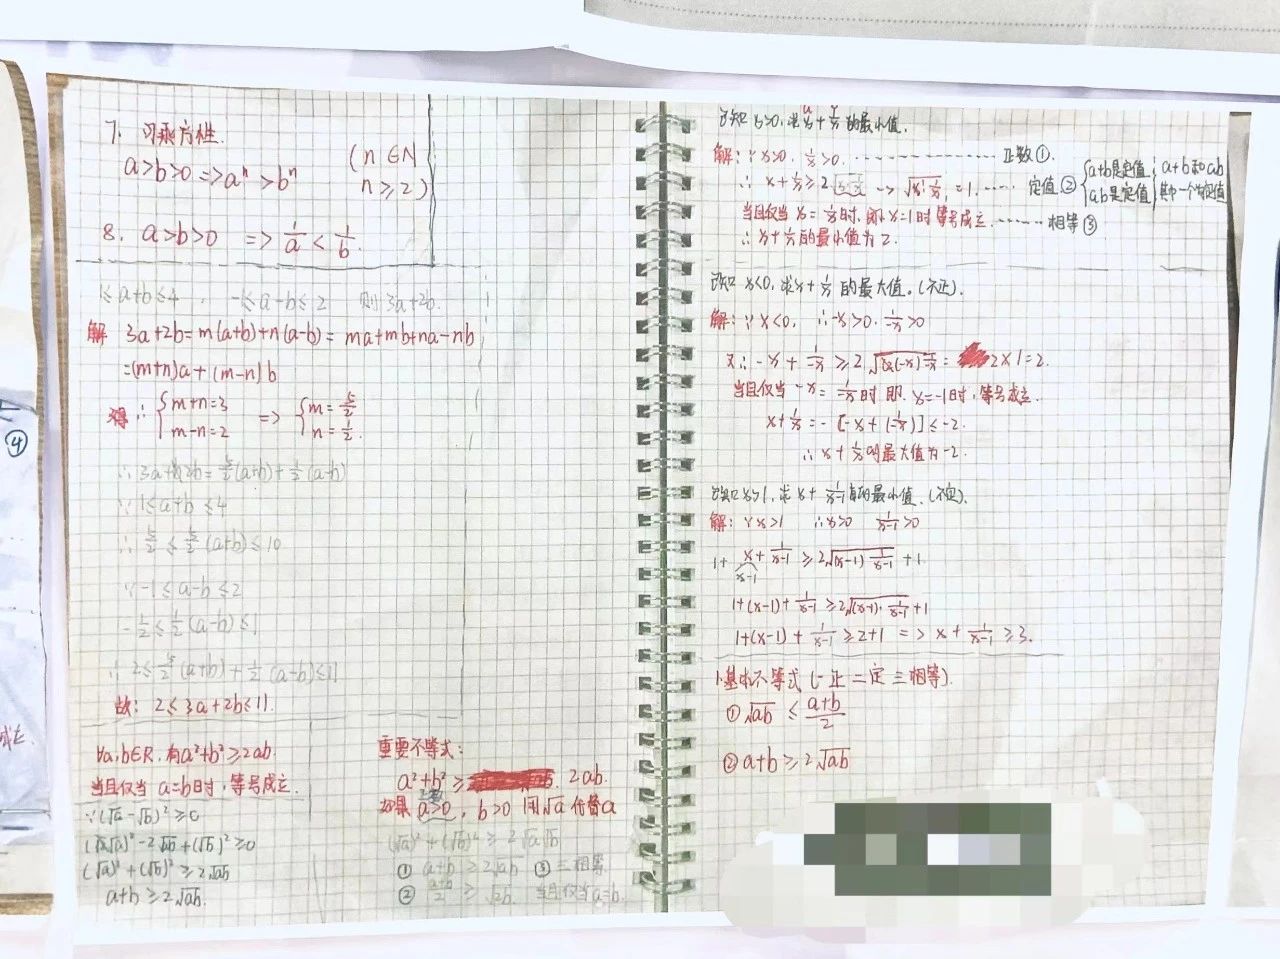 7. 可乘方性.
a>b>0 => aⁿ>bⁿ (n∈N
n≥2)
8. a>b>0 => 1/a < 1/b.
1≤a+b≤4, -1≤a-b≤2 则3a+2b.
解 3a+2b=m(a+b)+n(a-b)=ma+mb+na-nb
=(m+n)a+(m-n)b
得∴ {m+n=3 m-n=2 => {m=5/2 n=1/2.
∴3a+2b=5/2(a+b)+1/2(a-b)
∵1≤a+b≤4
∴5/2≤5/2(a+b)≤10
∵-1≤a-b≤2
-1/2≤1/2(a-b)≤1
∴2≤5/2(a+b)+1/2(a-b)≤11
故: 2≤3a+2b≤11.
∀a,b∈R,有a²+b²≥2ab.
当且仅当a=b时,等号成立.
∵(√a-√b)²≥0
(√a)²-2√ab+(√b)²≥0
(√a)²+(√b)²≥2√ab
a+b≥2√ab.
重要不等式:
a²+b²≥ 2ab.
如果a>0, b>0 用√a代替a
(√a)²+(√b)²≥2√a√b
① a+b≥2√ab ③ 三相等
② a+b/2≥√ab. 当且仅当a=b.
已知x>0,求x+1/x的最小值.
解:∵x>0, 1/x>0. ………… 正数①.
∴x+1/x≥2√x·1/x → √x·1/x=1. …… 定值② {a+b是定值 ab是定值 a+b和ab 其中一个为定值
当且仅当x=1/x时,即x=1时等号成立. …… 相等③
∴x+1/x的最小值为2.
已知x<0,求x+1/x的最大值。(不正).
解:∵x<0, ∴-x>0, 1/-x>0
又∴-x+1/-x≥2√(-x)1/-x= 2×1=2.
当且仅当-x=1/-x时,即x=-1时,等号成立.
x+1/x=-[-x+(-1/x)]≤-2.
∴x+1/x的最大值为-2.
已知x>1,求x+1/x-1的最小值.(不定).
解:∵x>1 ∴x>0 1/x-1>0
1+ x+1/x-1≥2√(x-1)1/x-1+1
x-1
1+(x-1)+1/x-1≥2√(x-1)·1/x-1+1
1+(x-1)+1/x-1≥2+1 => x+1/x-1≥3.
1.基本不等式(一正二定三相等).
① √ab≤a+b/2
② a+b≥2√ab
④